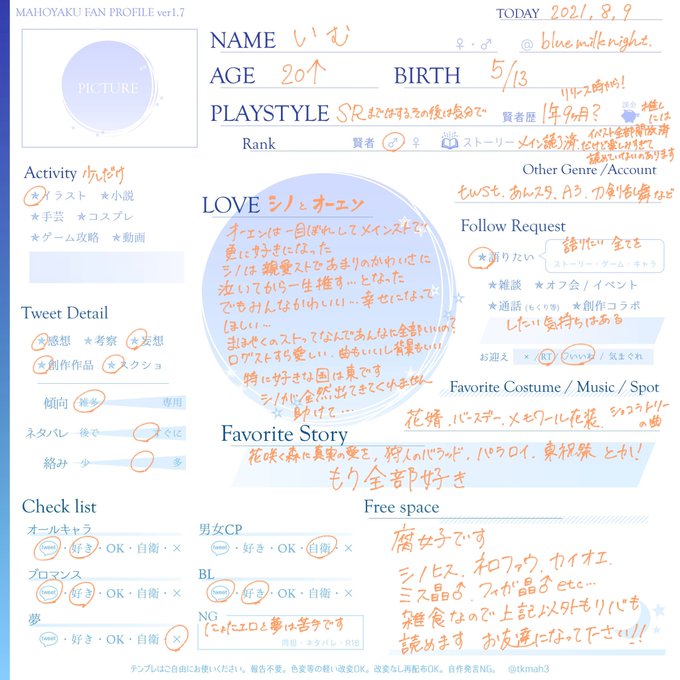 MAHOYAKU FAN PROFILE ver1.7
TODAY 2021, 8, 9
PICTURE
NAME いむ ♀・♂ @ bluemilknight.
AGE 20↑ BIRTH 5/13
リリース時から!
PLAYSTYLE SRまではする。その後は気分で 賢者歴 1年9ヶ月? 課金 推しには
Rank 賢者 ♂ ♀ ストーリー メイン読了済
イベスト全部開放済
だけど楽しみすぎて
読めていないのあります
Activity 少しだけ
★イラスト ★小説
★手芸 ★コスプレ
★ゲーム攻略 ★動画
LOVE シノとオーエン
オーエンは一目ぼれしてメインストで
更に好きになった
シノは親愛ストであまりのかわいさに
泣いてから一生推す…となった
でもみんなかわいい…幸せになって
ほしい…
まほやくのストってなんであんなに全部いいの?
ログストすら愛しい。曲もいいし背景もいい
特に好きな国は東です
シノが全然出てきてくれません
助けて…
Other Genre /Account
twst. あんスタ. A3. 刀剣乱舞など
Follow Request
★語りたい 語りたい 全てを
ストーリー・ゲーム・キャラ
★雑談 ★オフ会 / イベント
★通話 (もくり等) ★創作コラボ
したい気持ちはある
お迎え × / RT / ♡いいね / 気まぐれ
Tweet Detail
★感想 ★考察 ★妄想
★創作作品 ★スクショ
傾向 雑多 専用
ネタバレ 後で すぐに
絡み 少 多
Favorite Costume / Music / Spot
花婿. バースデー. メモワール衣装. ショコラトリーの曲
Favorite Story
花咲く森に真実の愛を, 狩人のバラッド, パラロイ, 東祝祭 とか!
もう全部好き
Check list
オールキャラ
tweet・好き・OK・自衛・×
ブロマンス
tweet・好き・OK・自衛・×
夢
tweet・好き・OK・自衛・×
男女CP
tweet・好き・OK・自衛・×
BL
tweet・好き・OK・自衛・×
NG
にょたエロと夢は苦手です
同担・ネタバレ・R18
Free space
腐女子です
シノヒス、ネロファウ、カイオエ、
ミス晶♂、フィガ晶♂ etc…
雑食なので上記以外もリバも
読めます お友達になってください!!
テンプレはご自由にお使いください。報告不要。色変等の軽い改変OK。改変なし再配布OK。自作発言NG。 @tkmah3